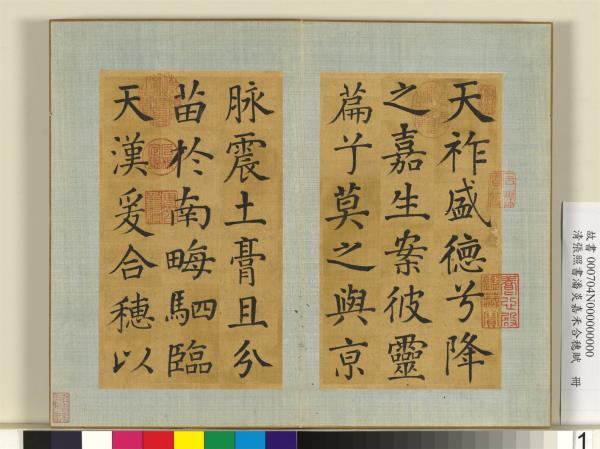 天祚盛德兮降
之嘉生案彼靈
篇莫之與京
脉震土膏且分
苗於南畮駟臨
天漢爰合穗以
故書 000704N000000000
清張照書潘炎嘉禾合穗賦 冊
1